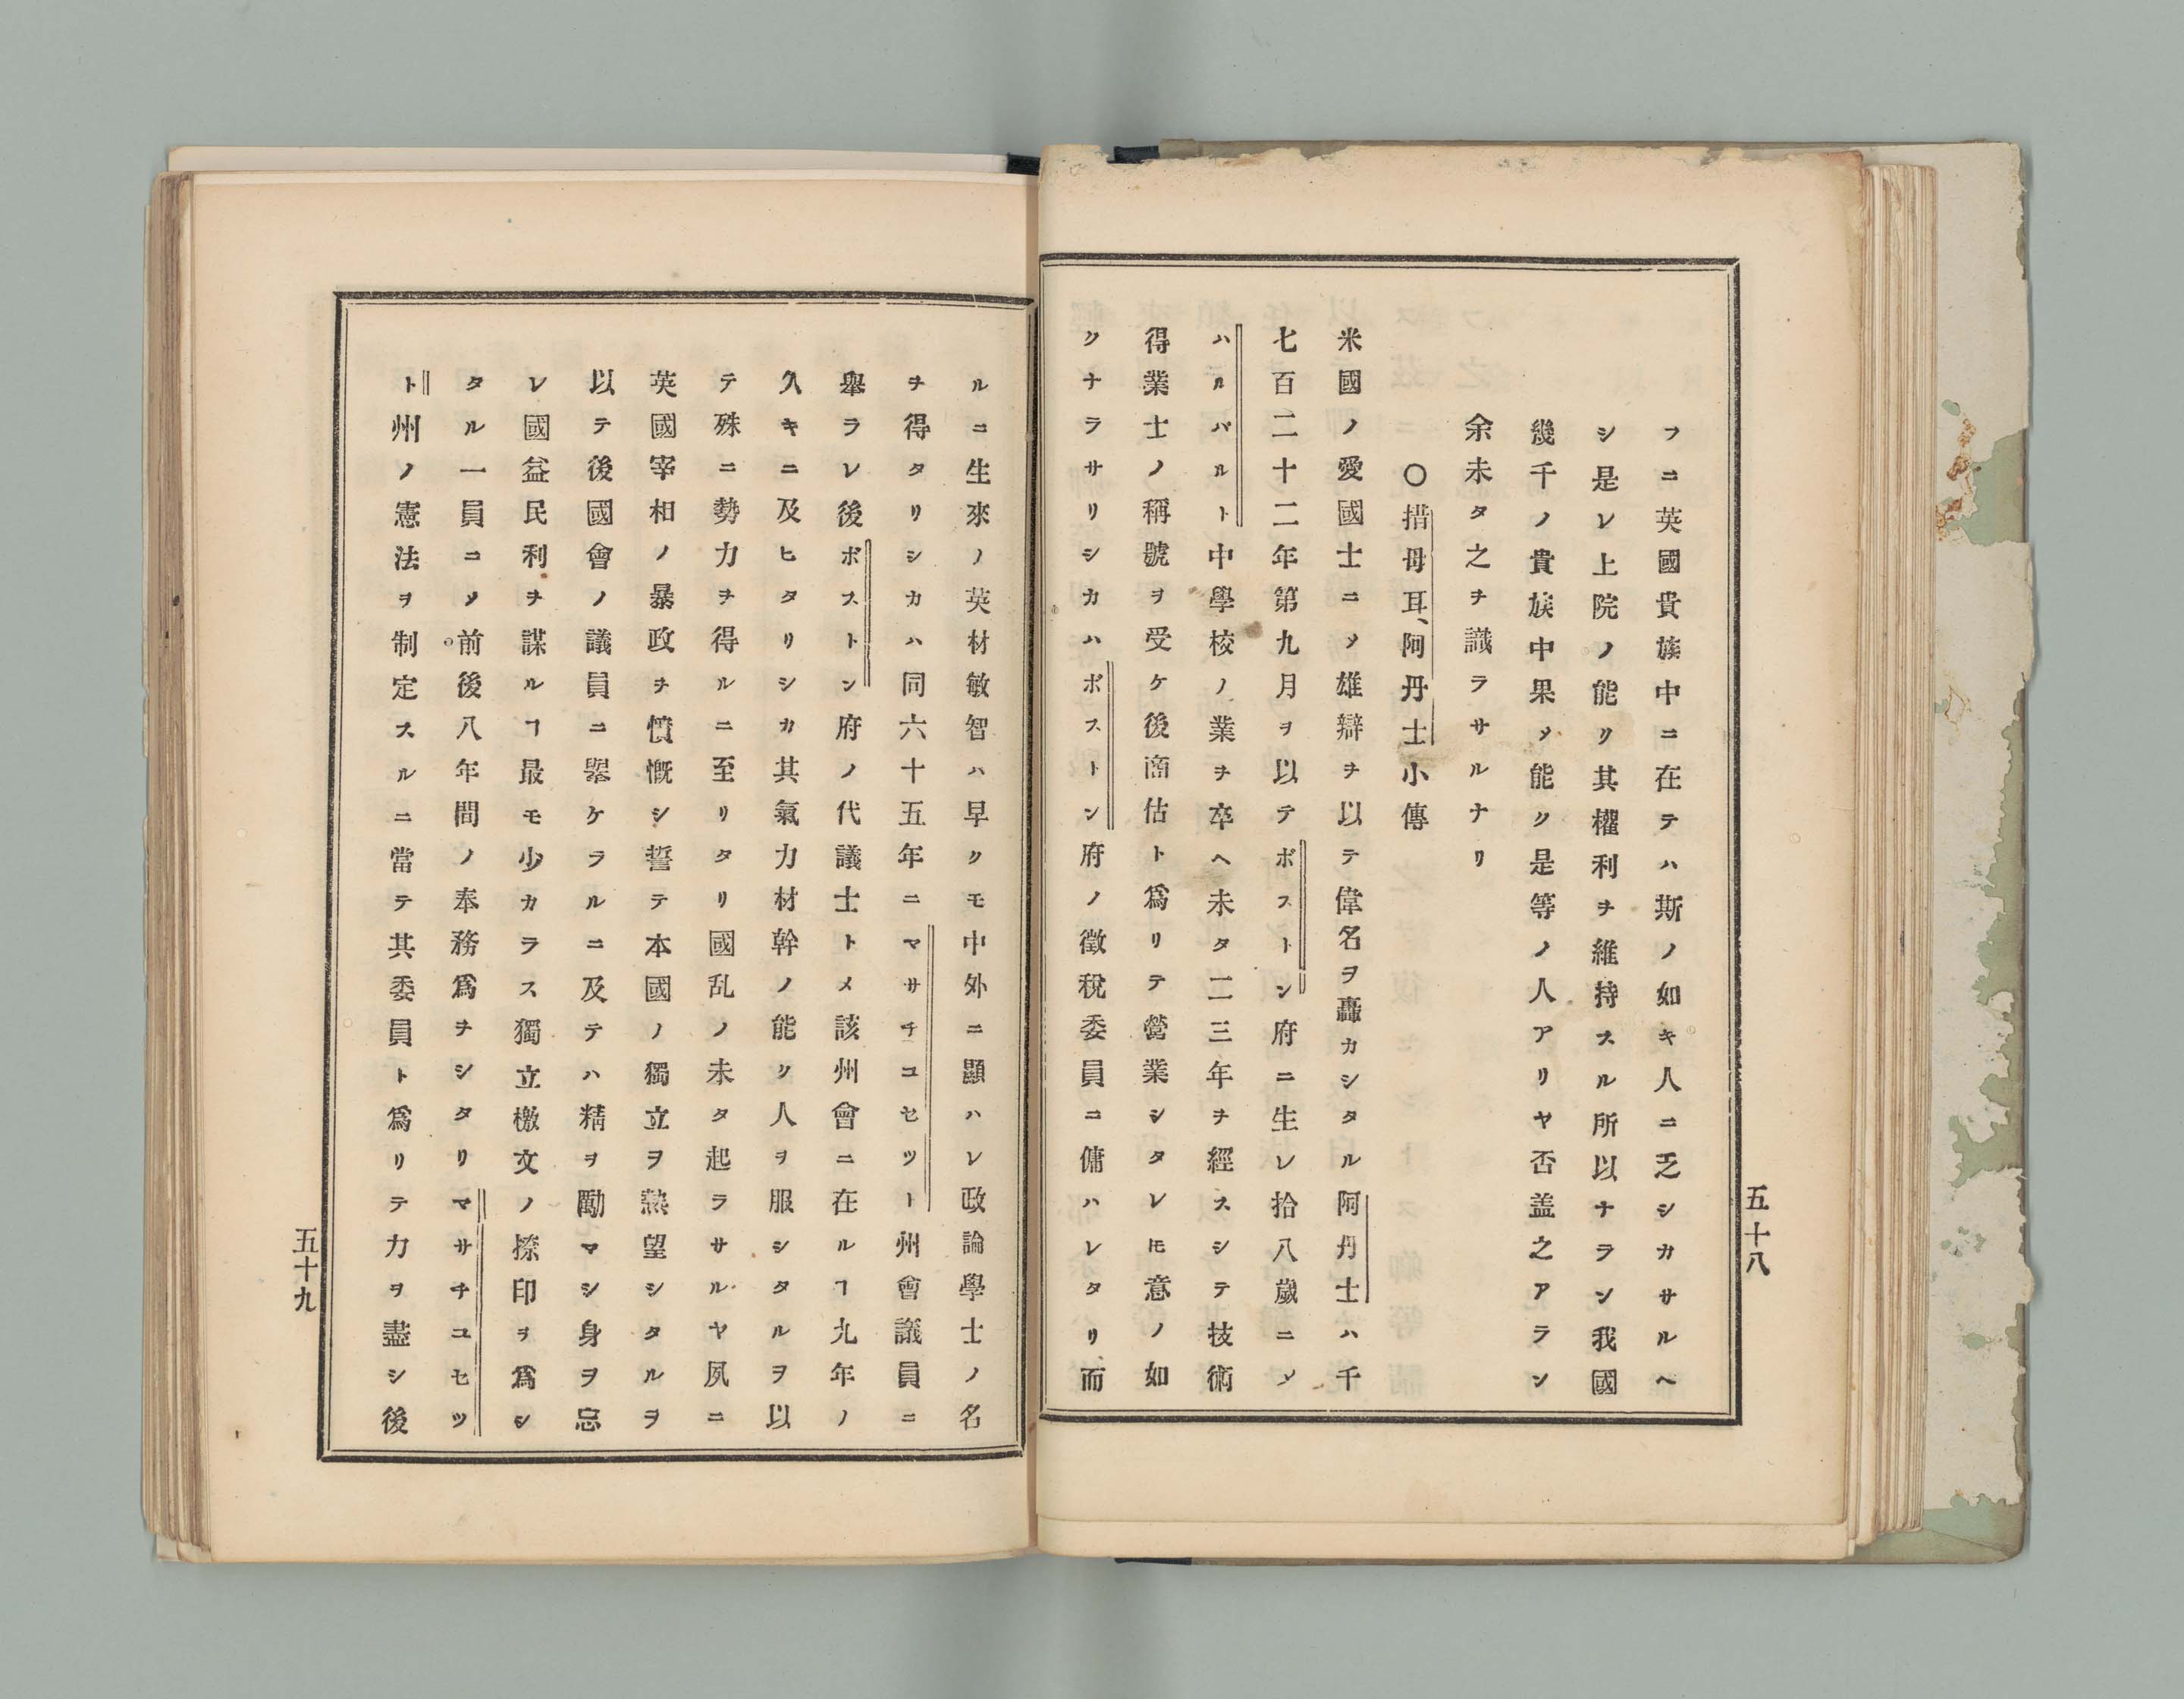 フニ英國貴族中ニ在テハ斯ノ如キ人ニ乏シカサルヘ
シ是レ上院ノ能ク其權利ヲ維持スル所以ナラン我國
幾千ノ貴族中果ノ能ク是等ノ人アリヤ否盖之アラン
余未タ之ヲ識ラサルナリ
〇措母耳、阿丹士小傳
米國ノ愛國士ニメ雄辯ヲ以テ偉名ヲ轟カシタル阿丹士ハ千
七百二十二年第九月ヲ以テボストン府ニ生レ拾八歲ニメ
ハルバルト中學校ノ業ヲ卒ヘ未タ二三年ヲ經スシテ技術
得業士ノ稱號ヲ受ケ後商估ト爲リテ營業シタレ𪜈意ノ如
クナラサリシカハボストン府ノ徵稅委員ニ傭ハレタリ而
五十八
ルニ生來ノ英材敏智ハ早クモ中外ニ顯ハレ政論學士ノ名
ヲ得タリシカハ同六十五年ニマサチユセツト州會議員ニ
舉ラレ後ボストン府ノ代議士トメ該州會ニ在ルヿ九年ノ
久キニ及ヒタリシカ其氣力材幹ノ能ク人ヲ服シタルヲ以
テ殊ニ勢力ヲ得ルニ至リタリ國乱ノ未タ起ラサルヤ夙ニ
英國宰相ノ暴政ヲ憤慨シ誓テ本國ノ獨立ヲ熱望シタルヲ
以テ後國會ノ議員ニ舉ケラルニ及テハ精ヲ勵マシ身ヲ忘
レ國益民利ヲ謀ルヿ最モ少カラス獨立檄文ノ捺印ヲ爲シ
タル一員ニメ前後八年間ノ奉務爲ヲシタリマサチユセツ
ト州ノ憲法ヲ制定スルニ當テ其委員ト爲リテ力ヲ盡シ後
五十九